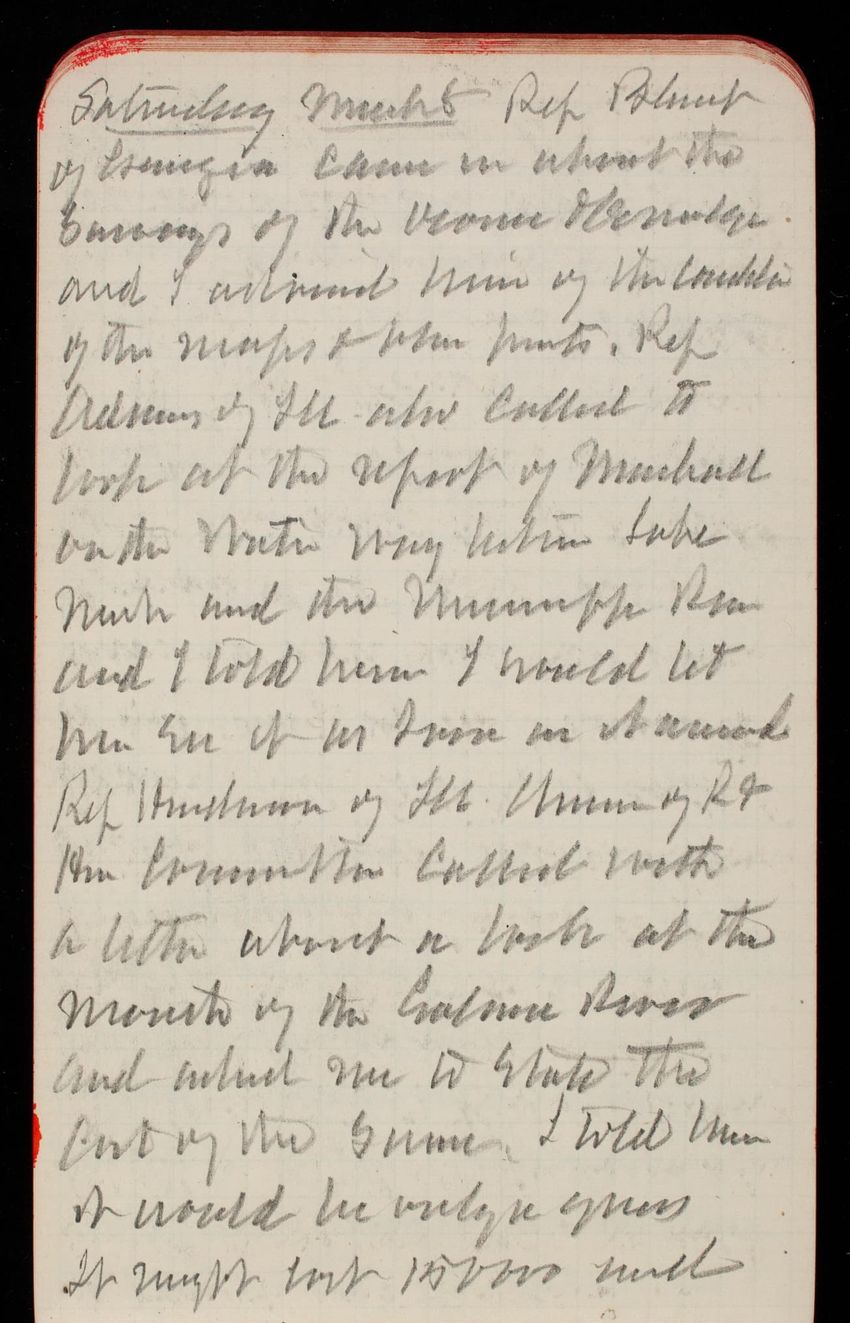 Saturday March 8 Rep Blount
of Georgia came in about the
Surveys of the Oconee & Ocmulgee
and I advised him of the condition
of the maps & blue prints. Rep
Adams of Ill also called to
look at the report of Marshall
on the Water Way between Lake
Mich and the Mississippi River
and I told him I would let
him see it as soon as it arrived
Rep Henderson of Ill. Chairman of R &
Har Committee called with
a letter about a lock at the
Mouth of the Galena River
and asked me to State the
Cost of the Same. I told him
it would be only a guess
It might cost 150000 and